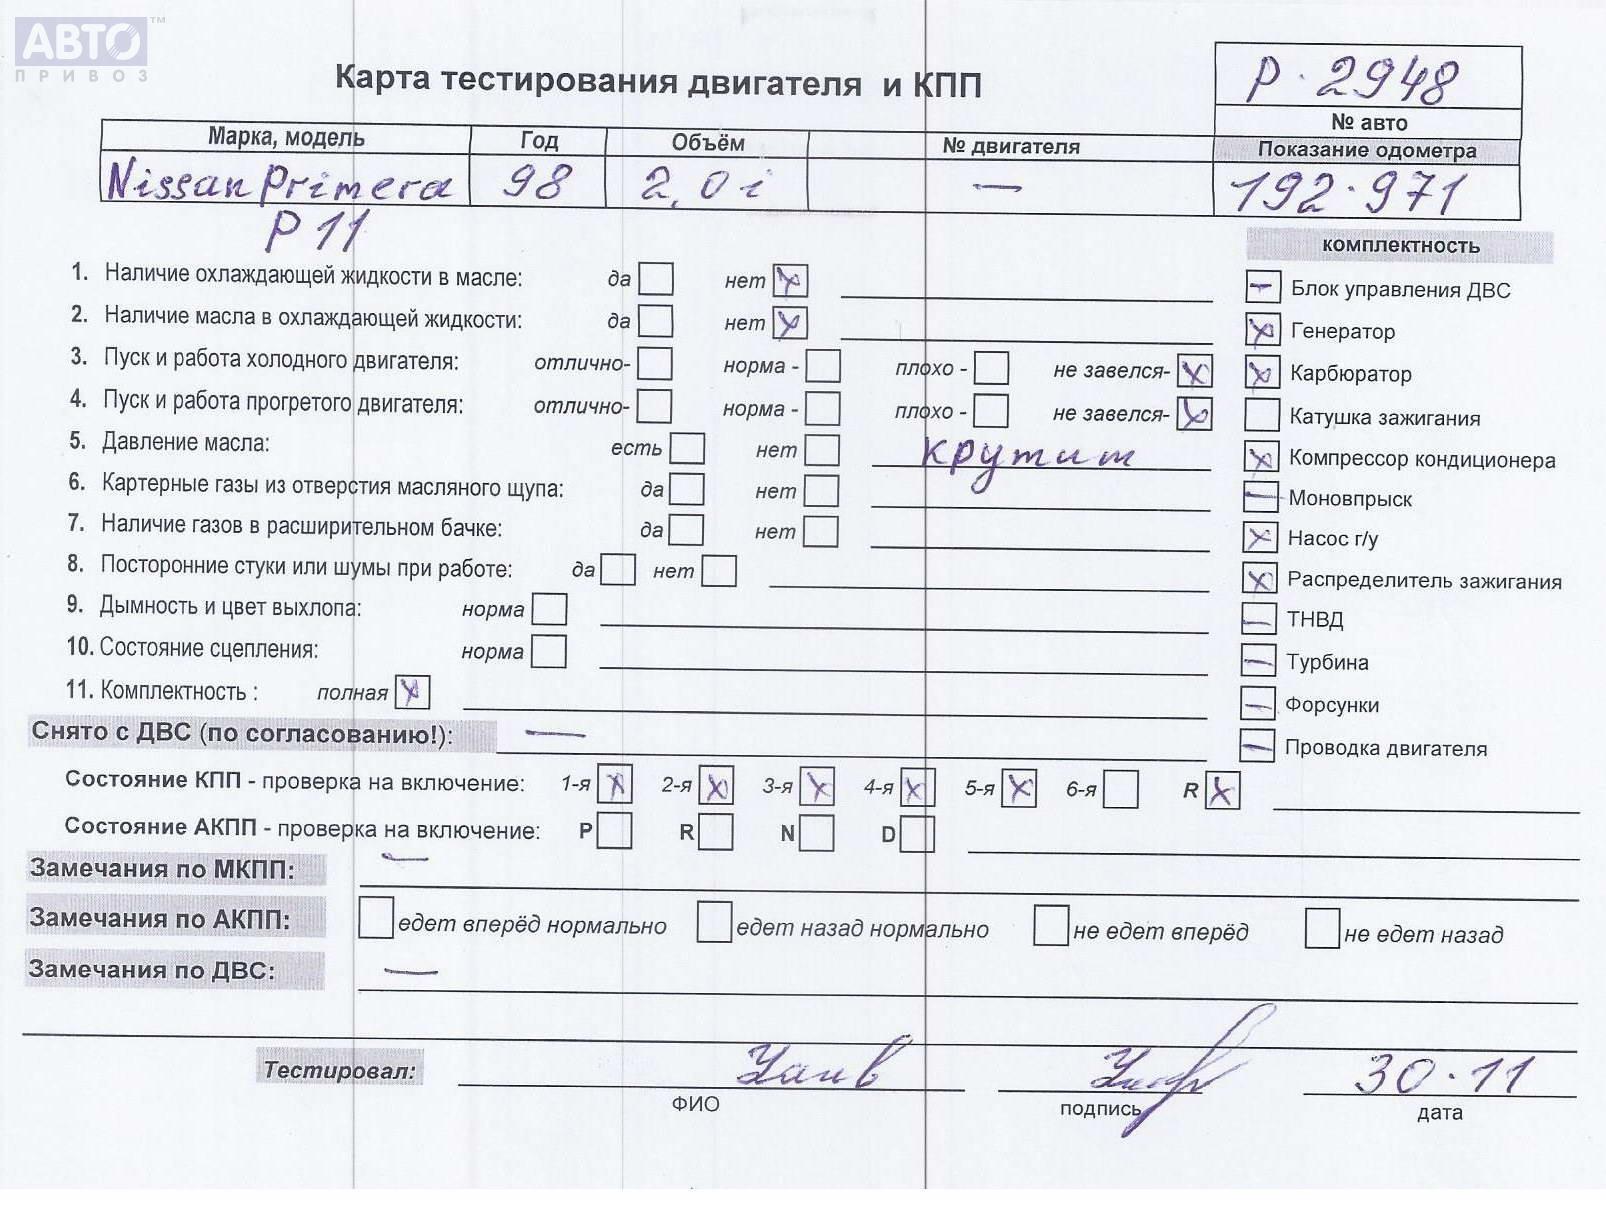 АВТО™
ПРИВОЗ
Карта тестирования двигателя и КПП
Р·2948
№ авто
Марка, модель Год Объём № двигателя Показание одометра
Nissan Primera 98 2,0i — 192·971
P11
комплектность
1. Наличие охлаждающей жидкости в масле: да нет x
Блок управления ДВС
2. Наличие масла в охлаждающей жидкости: да нет x
Генератор
3. Пуск и работа холодного двигателя: отлично- норма - плохо - не завелся- x
Карбюратор
4. Пуск и работа прогретого двигателя: отлично- норма - плохо - не завелся- x
Катушка зажигания
5. Давление масла: есть нет крутит
Компрессор кондиционера
6. Картерные газы из отверстия масляного щупа: да нет
Моновпрыск
7. Наличие газов в расширительном бачке: да нет
Насос г/у
8. Посторонние стуки или шумы при работе: да нет
Распределитель зажигания
9. Дымность и цвет выхлопа: норма
ТНВД
10. Состояние сцепления: норма
Турбина
11. Комплектность : полная x
Форсунки
Снято с ДВС (по согласованию!): —
Проводка двигателя
Состояние КПП - проверка на включение: 1-я x 2-я x 3-я x 4-я x 5-я x 6-я R x
Состояние АКПП - проверка на включение: P R N D
Замечания по МКПП: —
Замечания по АКПП: едет вперёд нормально едет назад нормально не едет вперёд не едет назад
Замечания по ДВС: —
Тестировал: 30·11
ФИО подпись дата